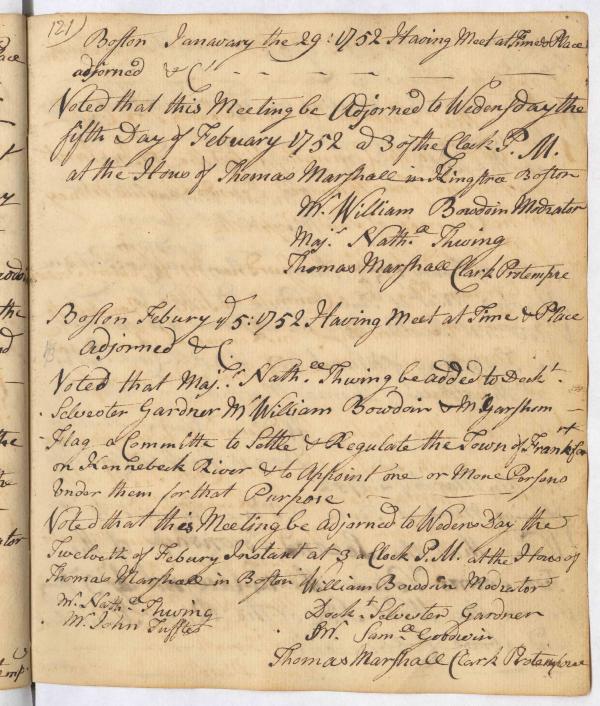 121)
Boston Janavary the 29: 1752 Having Meet at Time & Place
adjorned & C
Voted that this Meeting be Adjorned to Wedensday the
fifth Day of Febuary 1752 at 3 of the Clock P. M.
at the Hous of Thomas Marshall in Kingstree Boston
Mr William Bowdoin Modrator
Majr Nathll Thwing
Thomas Marshall Clark Protempre
Boston Febury ye 5: 1752 Having Meet at Time & Place
adjorned & C.
Voted that Majr. Nathll Thwing be added to Dockt.
Selvester Gardner Mr William Bowdoin & Mr Garshom
Flag a Committe to Settle & Regulate the Town of Frankfort
on Kennebeck River & to Appoint one or More Persons
Under them for that Purpose
Voted that this Meeting be adjorned to Wedens Day the
Twelveth of Febury Instant at 3 a Clock P.M. at the Hous of
Thomas Marshall in Boston William Bowdoin Modrator
Mr. Nathll Thwing Dockt. Selvester Gardner
Mr. John Tufftes Mr. Samll Godwin
Thomas Marshall Clark Protempree